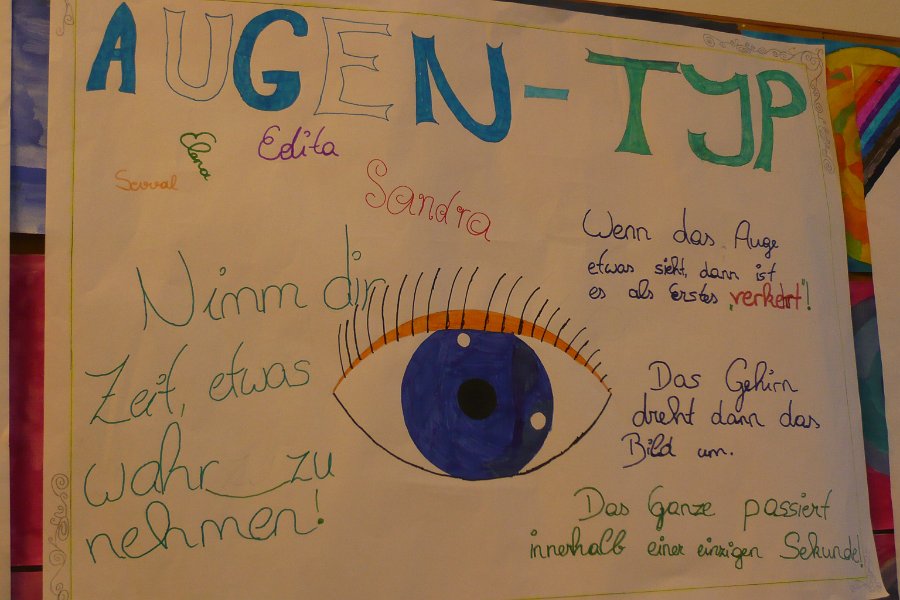 AUGEN-TYP
Elena
Edita
Sandra
Nimm dir
Zeit, etwas
wahr zu
nehmen!
Wenn das Auge
etwas sieht, dann ist
es als Erstes „verkehrt“!
Das Gehirn
dreht dann das
Bild um.
Das Ganze passiert
innerhalb einer einzigen Sekunde!